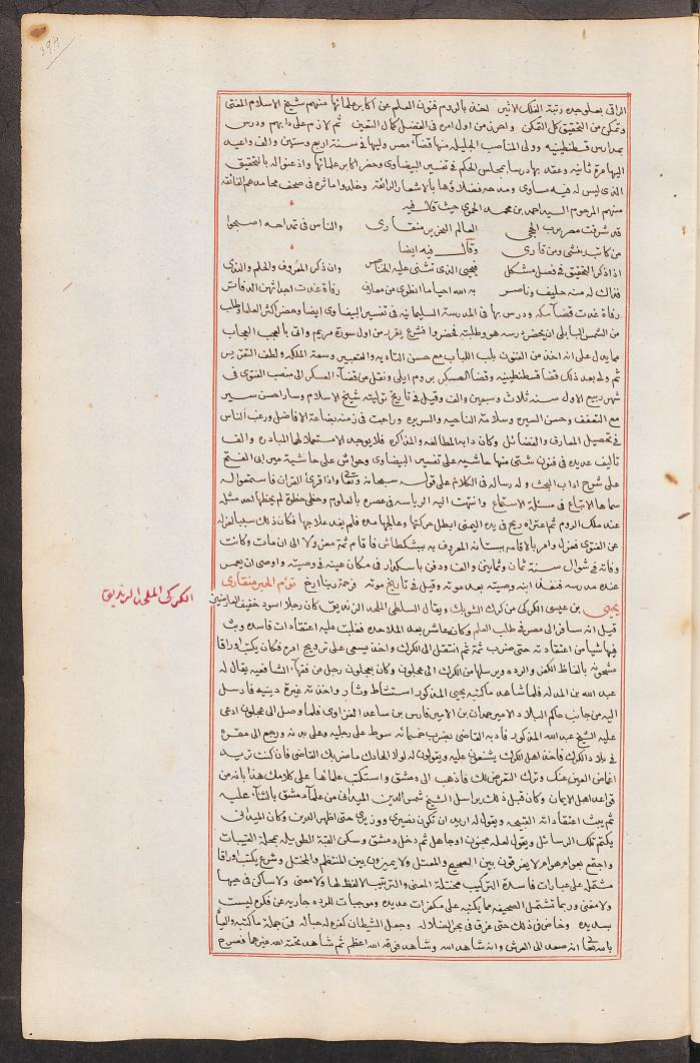 394
الراقي بعلو جده رتبة الفلك الاثير اخذ بالروم فنون العلم عن اكابر علمائها منهم شيخ الاسلام المفتي
وتمكن من التحقيق كل التمكن واحرز من اول امره في الفضل كمال التعين ثم لازم على دابهم ودرس
بمدارس قسطنطينيه وولي المناصب الجليله منها قضاء مصر وليها في سنة اربع وستين والف واعيد
اليها مرة ثانيه وعقد بها درسا بمجلس الحكم في تفسير البيضاوي وحضر اكابر علمائها واذعنوا له بالتحقيق
الذي ليس له فيه مساوي ومدحه فضلاؤها بالاشعار الرائقة وخلدوا ماثره في صحف محامدهم الفائقه
منهم المرحوم السيد احمد بن محمد الحموي حيث قال فيه
قد شرفت مصر برب الحجى العالم البحر بن منقاري والناس في تمداحه اصبحوا
من كاتب منشي ومن قاري وقال فيه ايضا
اذا ذكر التحقيق في فصل مشكل فيحيى الذي تثنى عليه الخناصر وان ذكر المعروف والحلم والندى
فذاك له منه حليف وناصر به الله احيا ما انطوى من معارف رفاة غدت اجداثهن الدفاتر
رفاة غدت قضا مكه ودرس بها في المدرسة السليمانية في تفسير البيضاوي ايضا وحضر اكثر العلماء وطلب
من الشمس البابلي ان يحضر درسه هو وطلبته فحضروا فشرع يقرر من اول سورة مريم واتى بالعجب العجاب
مما يدل على انه اخذ من الفنون بلب اللباب مع حسن التاديه والتعبير وسعة الملكه ولطف التقرير
ثم ولي بعد ذلك قضا قسطنطينيه وقضا العسكر بروم ايلي ونقل من قضاء العسكر الى منصب الفتوى في
شهر ربيع الاول سنه ثلاث وسبعين والف وقيل في تاريخ توليته شيخ الاسلام وسار احسن سير
مع التعفف وحسن السيره وسلامة الناحيه والسريره وراجت في زمنه بضاعة الافاضل ورغب الناس
في تحصيل المعارف والفضائل وكان دابه المطالعه والمذاكره فلا يوجد الا مستعملا لهما المبادره والف
تاليف عديده في فنون شتى منها حاشيه على تفسير البيضاوي وحواش على حاشية مير ابي الفتح
على شرح اداب البحث وله رسالة في الكلام على قوله سبحانه وتعالى واذا قرئ القرآن فاستمعوا له
سماها الاتباع في مسئلة الاستماع وانتهت اليه الرياسه في عصره بالعلوم وحظي حظوة لم يحظها احد مثله
عند ملك الروم ثم عتراه ريح في يده اليمنى ابطل حركتها وعالجها مده فلم يفد علاجها فكان ذلك سببا لعزله
عن الفتوى فعزل وامر بالاقامه ببستانه المعروف به ببشكطاش فاقام ثمة معزولا الى ان مات وكانت
وفاته في شوال سنة ثمان وثمانين والف ودفن باسكدار في مكان عينه في وصيته واوصى ان يعمر
عنده مدرسه فنفذ ابنه وصيته بعد موته وقيل في تاريخ موته
الكركي الملحد الزنديق
يحيى بن عيسى الكركي من كرك الشوبك ويقال السلطي الملحد الزنديق كان رجلا اسود خفيف العارضين
قيل انه سافر الى مصر في طلب العلم وكان عاشر بعد الملاحده فغلبت عليه اعتقادات فاسده وبث
فيها شيا من اعتقاداته حتى ضرب ثمة ثم انتقل الى الكرك واخذ يسعى على ترويج امره فكان يكتب اوراقا
مشحونة بالفاظ الكفر والرده ويرسلها من الكرك الى عجلون وكان بعجلون رجل من فقهاء الشافعيه يقال له
عبد الله بن المدله فلما شاهد ما كتبه يحيى المذكور استشاط وثار واخذته غيرة دينيه فارسل
اليه من جانب حاكم البلاد الامير حمدان بن الامير فارس بن ساعد الغزاوي فلما وصل الى عجلون ادعى
عليه الشيخ عبد الله المذكور فادبه القاضي بضرب خمسمائة سوط على رجليه وعلى بدنه ورجع الى مقره
في بلاد الكرك فاخذ اهل الكرك يشنعون عليه ويقولون له لولا الحادك ما ضربك القاضي فان كنت تريد
اغماض العين عنك وترك التعرض لك فاذهب الى دمشق واستكتب علماءها على كلامك هذا بانه من
قواعد اهل الايمان وكان قبل ذلك يراسل الشيخ شمس الدين الميداني من علماء دمشق بالثناء عليه
ثم يبث اعتقاداته القبيحه ويقول له اريد ان تكون نصيري ووزيري حتى اظهر الدين وكان الميداني
يكتم تلك الرسائل ويقول لعله مجنون او جاهل ثم دخل دمشق وسكن القبة الطويله بمحلة القبيبات
واجتمع بعوام هوام لا يفرقون بين الصحيح والمعتل ولا يميزون بين المنتظم والمختل وشرع يكتب اوراقا
مشتمله على عبارات فاسدة التركيب مختلة المعنى والترتيب لا لفظ لها ولا معنى ولا ساكن في حيها
ولا مغنى وربما تشتمل الصحيفه مما يكتبه على مكفرات عديده وموجبات للرده جاريه عن فكرة ليست
بسديده وخاض في ذلك حتى غرق في بحر الضلاله وجعل الشيطان كفره له حباله فن جملة ما كتبه والعياذ
بالله تعالى انه صعد الى العرش وانه شاهد الله وشاهد فرقه الله اعظم ثم شاهد تحته الله غيرهما فصرح